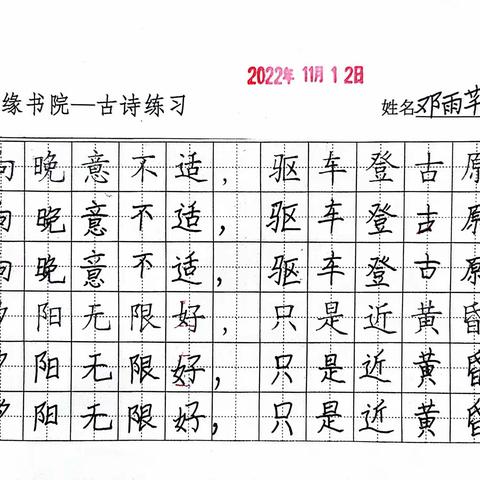 2022年 11月 1 2日
缘书院—古诗练习
姓名 邓雨芊
向晚意不适，驱车登古原
向晚意不适，驱车登古原
向晚意不适，驱车登古原
夕阳无限好，只是近黄昏
夕阳无限好，只是近黄昏
夕阳无限好，只是近黄昏